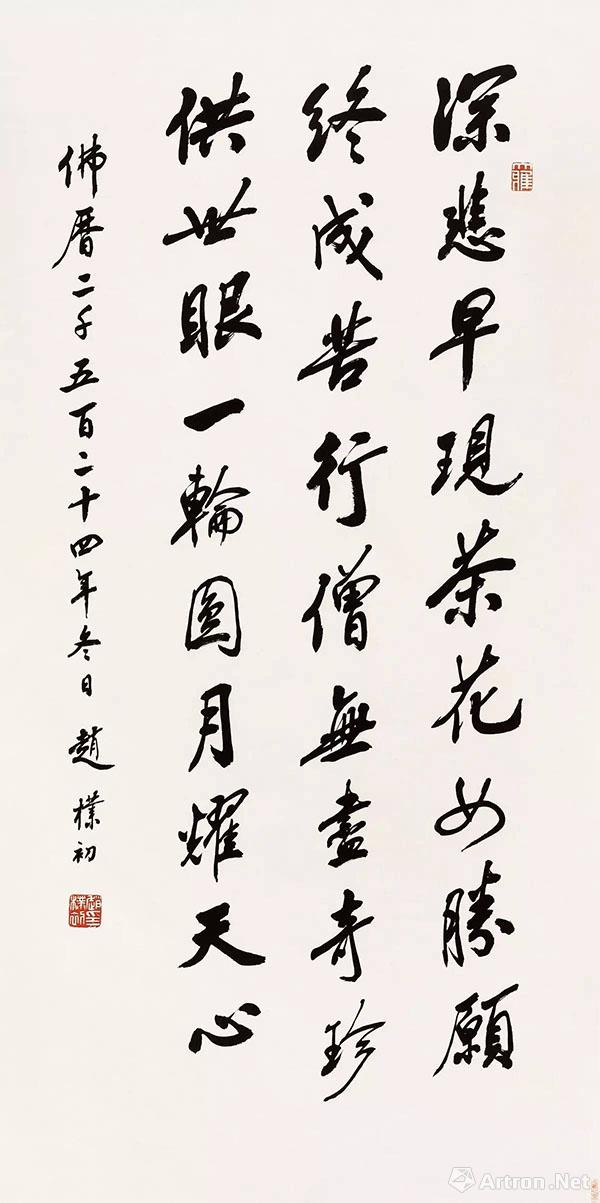 深悲早現茶花女勝願
終成苦行僧無盡奇珍
供世眼一輪圓月耀天心
佛曆二千五百二十四年冬日 趙樸初
趙樸初印
Artron.Net